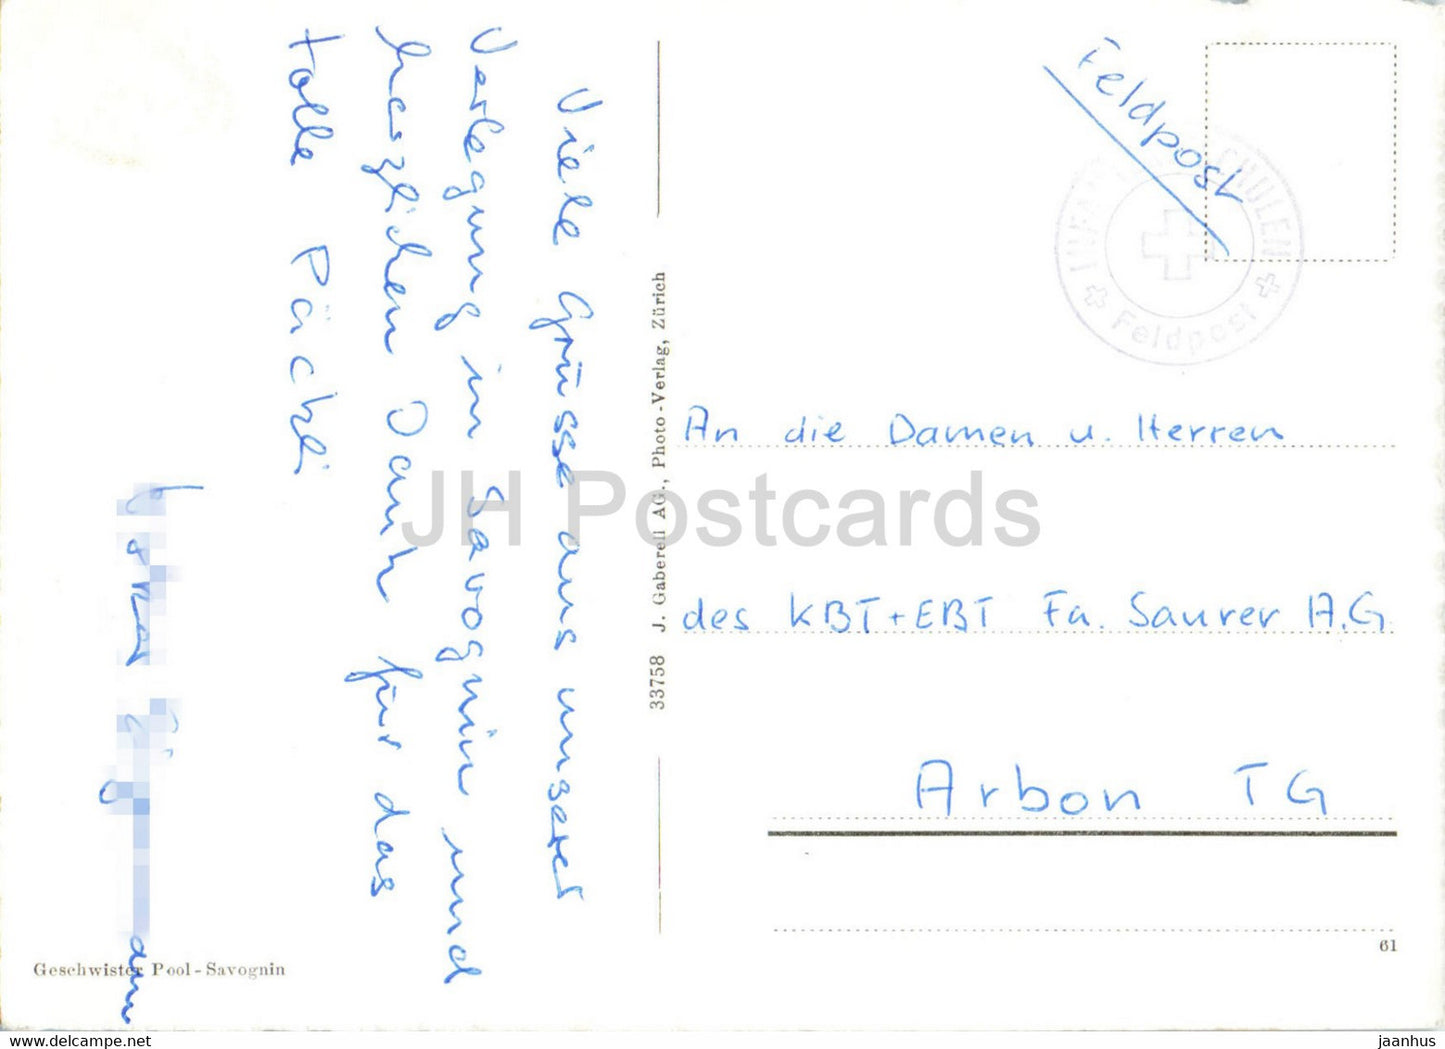 Viele Grüsse aus unserer
Verlegung in Savognin und
herzlichen Dank für das
tolle Päckli
Feldpost
SCHULEN
Feldpost
An die Damen u. Herren
des KBT+EBT Fa. Saurer A.G
Arbon TG
33758 J. Gaberell AG., Photo-Verlag, Zürich
Geschwister Pool - Savognin
61
JH Postcards
www.delcampe.net
jaanhus